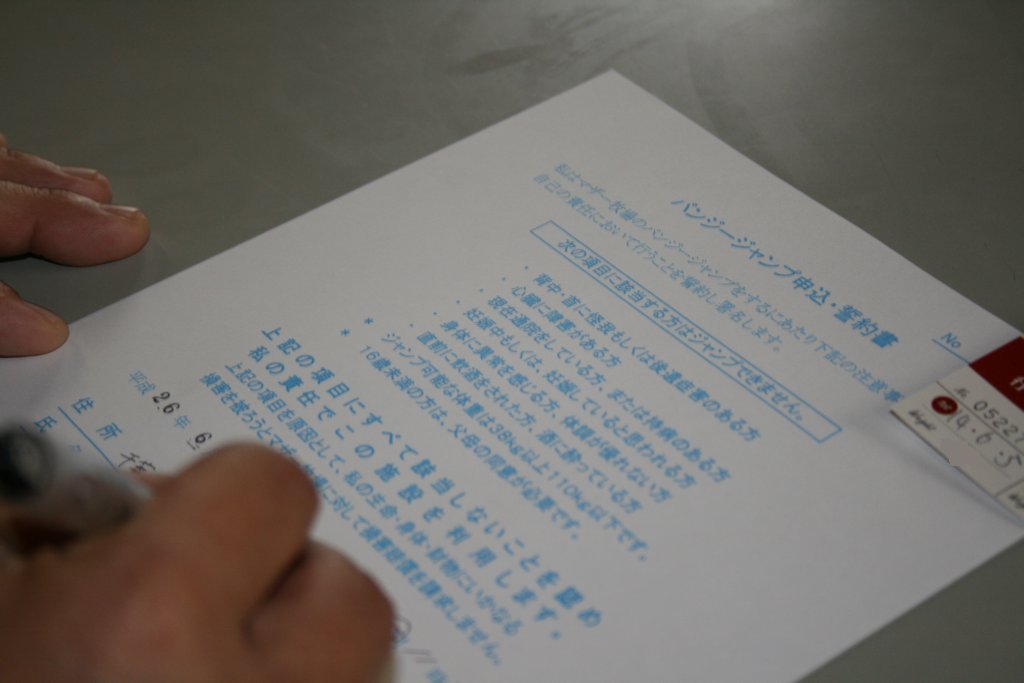 バンジージャンプ申込・誓約書
No
私はマザー牧場のバンジージャンプをするにあたり下記の注意事
自己の責任において行うことを誓約し署名します。
次の項目に該当する方はジャンプできません。
・背中・首に怪我もしくは後遺症のある方
・心臓に障害がある方
・現在通院をしている方、または持病のある方
・妊娠中もしくは、妊娠していると思われる方
・身体に異常を感じる方、体調が優れない方
・直前に飲酒をされた方、酒に酔っている方
＊ジャンプ可能な体重は38kg以上110kg以下です。
＊16歳未満の方は、父母の同意が必要です。
上記の項目にすべて該当しないことを認め
私の責任でこの施設を利用します。
上記の項目を原因として、私の生命・身体・財物にいかなる
損害を被ろうとマザー牧場に対して損害賠償を請求しません。
平成26年 6
住所 千葉
氏
No. 05227
14.6.5